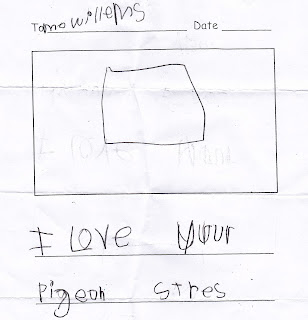 To mo willems Date
I love your
Pigeon stres